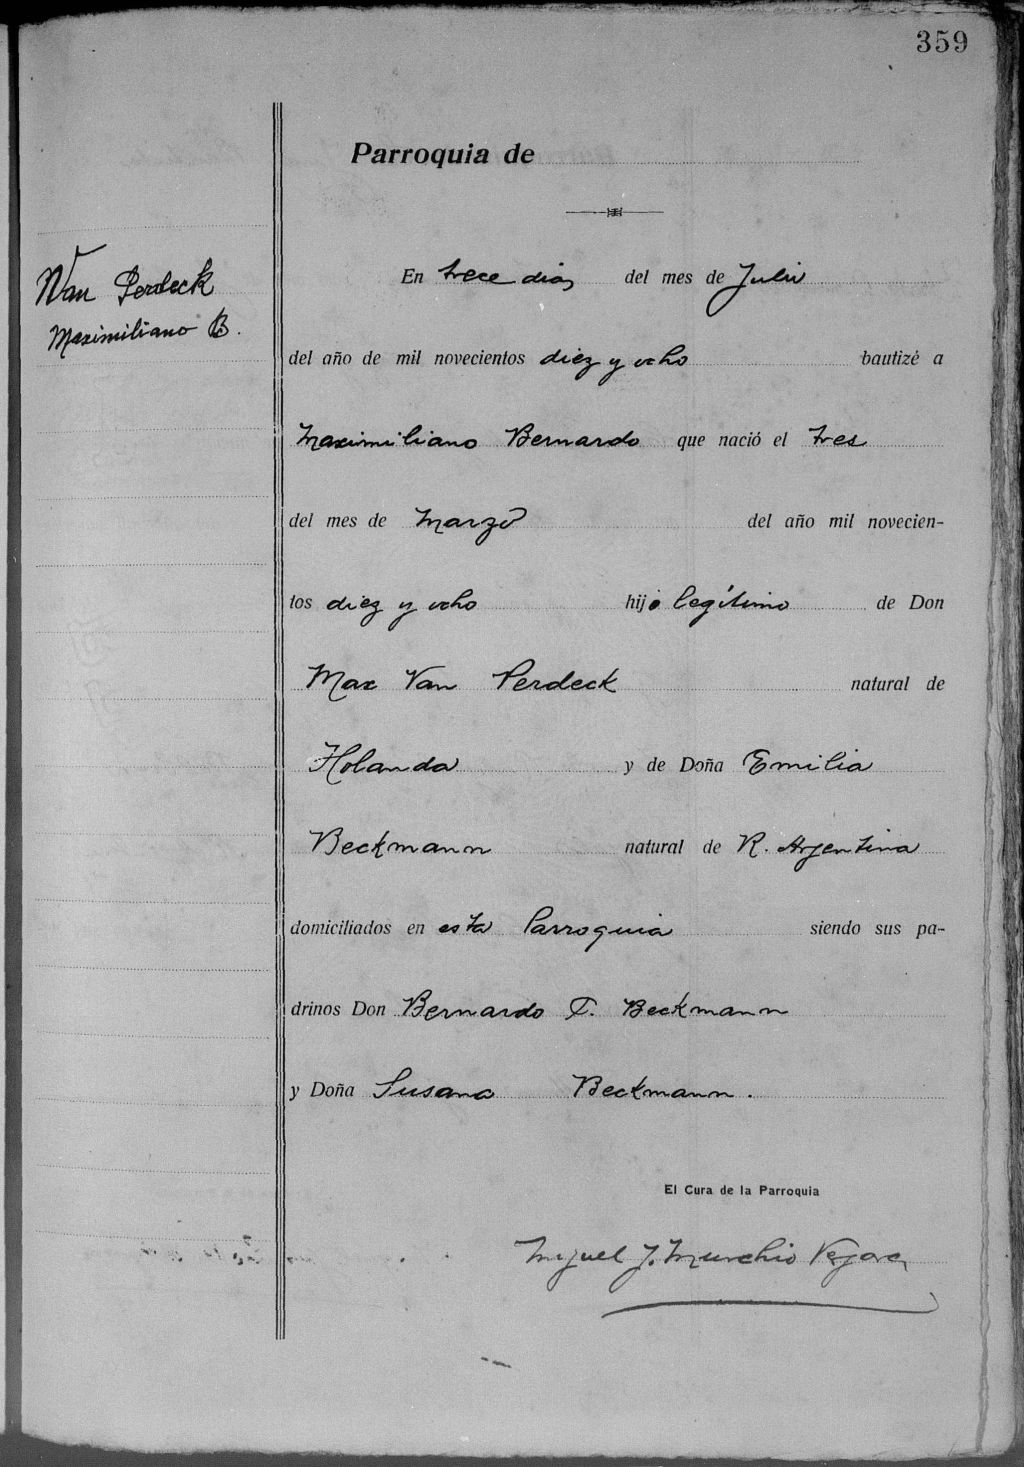 359
Parroquia de
Van Perdeck
Maximiliano B.
En trece dias del mes de Julio
del año de mil novecientos diez y ocho bautizé a
Maximiliano Bernardo que nació el tres
del mes de Marzo del año mil novecien-
tos diez y ocho hijo legítimo de Don
Max Van Perdeck natural de
Holanda y de Doña Emilia
Beckmann natural de R. Argentina
domiciliados en esta Parroquia siendo sus pa-
drinos Don Bernardo F. Beckmann
y Doña Susana Beckmann.
El Cura de la Parroquia
Miguel J. Murchio Vejara